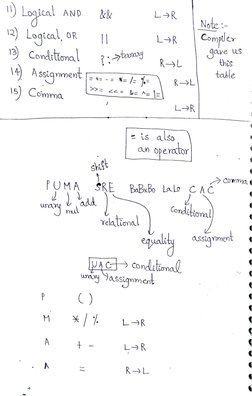 11) Logical AND && L→R
12) Logical OR || L→R
13) Conditional ?: → ternary R→L
14) Assignment = += -= *= /= %= >>= <<= &= ^= |= R→L
15) Comma L→R
Note:-
Compiler
gave us
this
table
= is also
an operator
shift
PUMA SRE BaBaBo LaLo CAC → comma
unary mul add
relational
equality
conditional
assignment
UAC → conditional
unary assignment
P ( )
M * / % L→R
A + - L→R
A = R→L